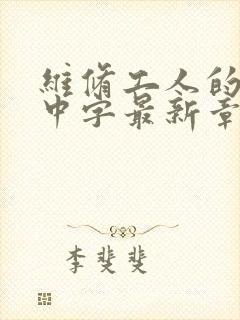 維脩工人的
中字最新章
李斐斐